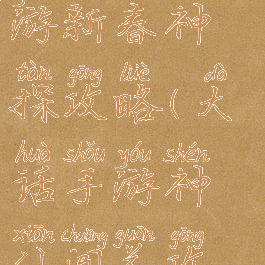 游新春神
tàn gōng lüè dà
探攻略(大
huà shǒu yóu shén
话手游神
xiān chuǎng guān gōng